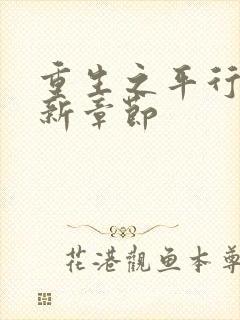 重生之平行
新章节
花港觀鱼本尊